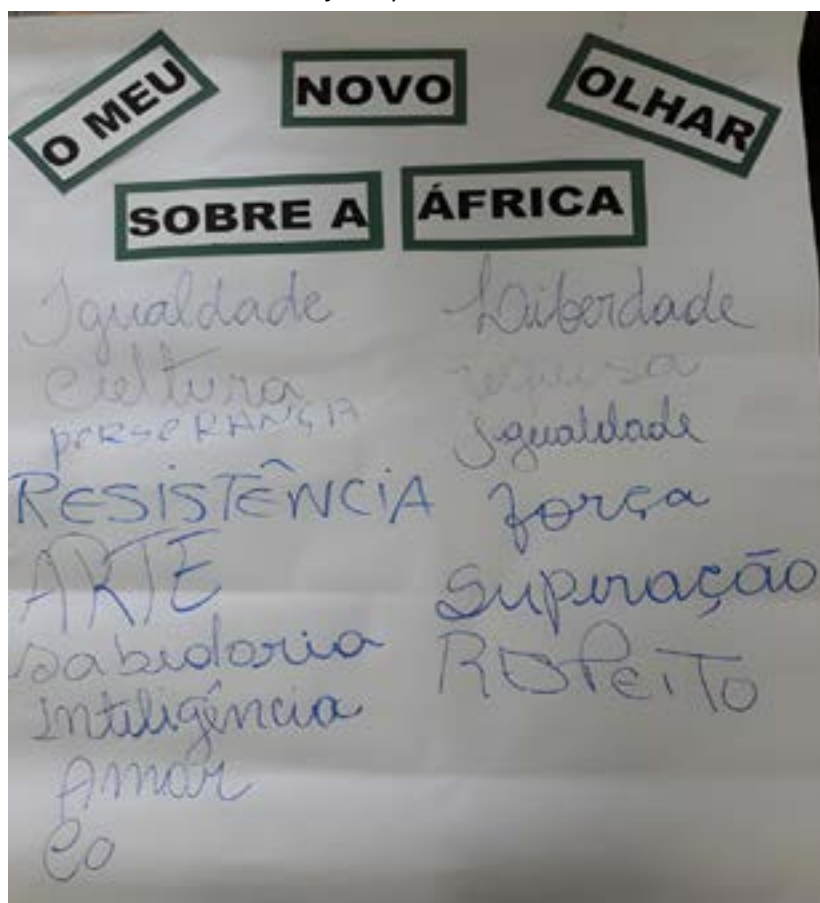 O MEU NOVO OLHAR
SOBRE A ÁFRICA
Igualdade
Cultura
PERSERANÇA
RESISTÊNCIA
ARTE
Sabidoria
Inteligência
Amor
Co
Liberdade
Igualdade
força
Superação